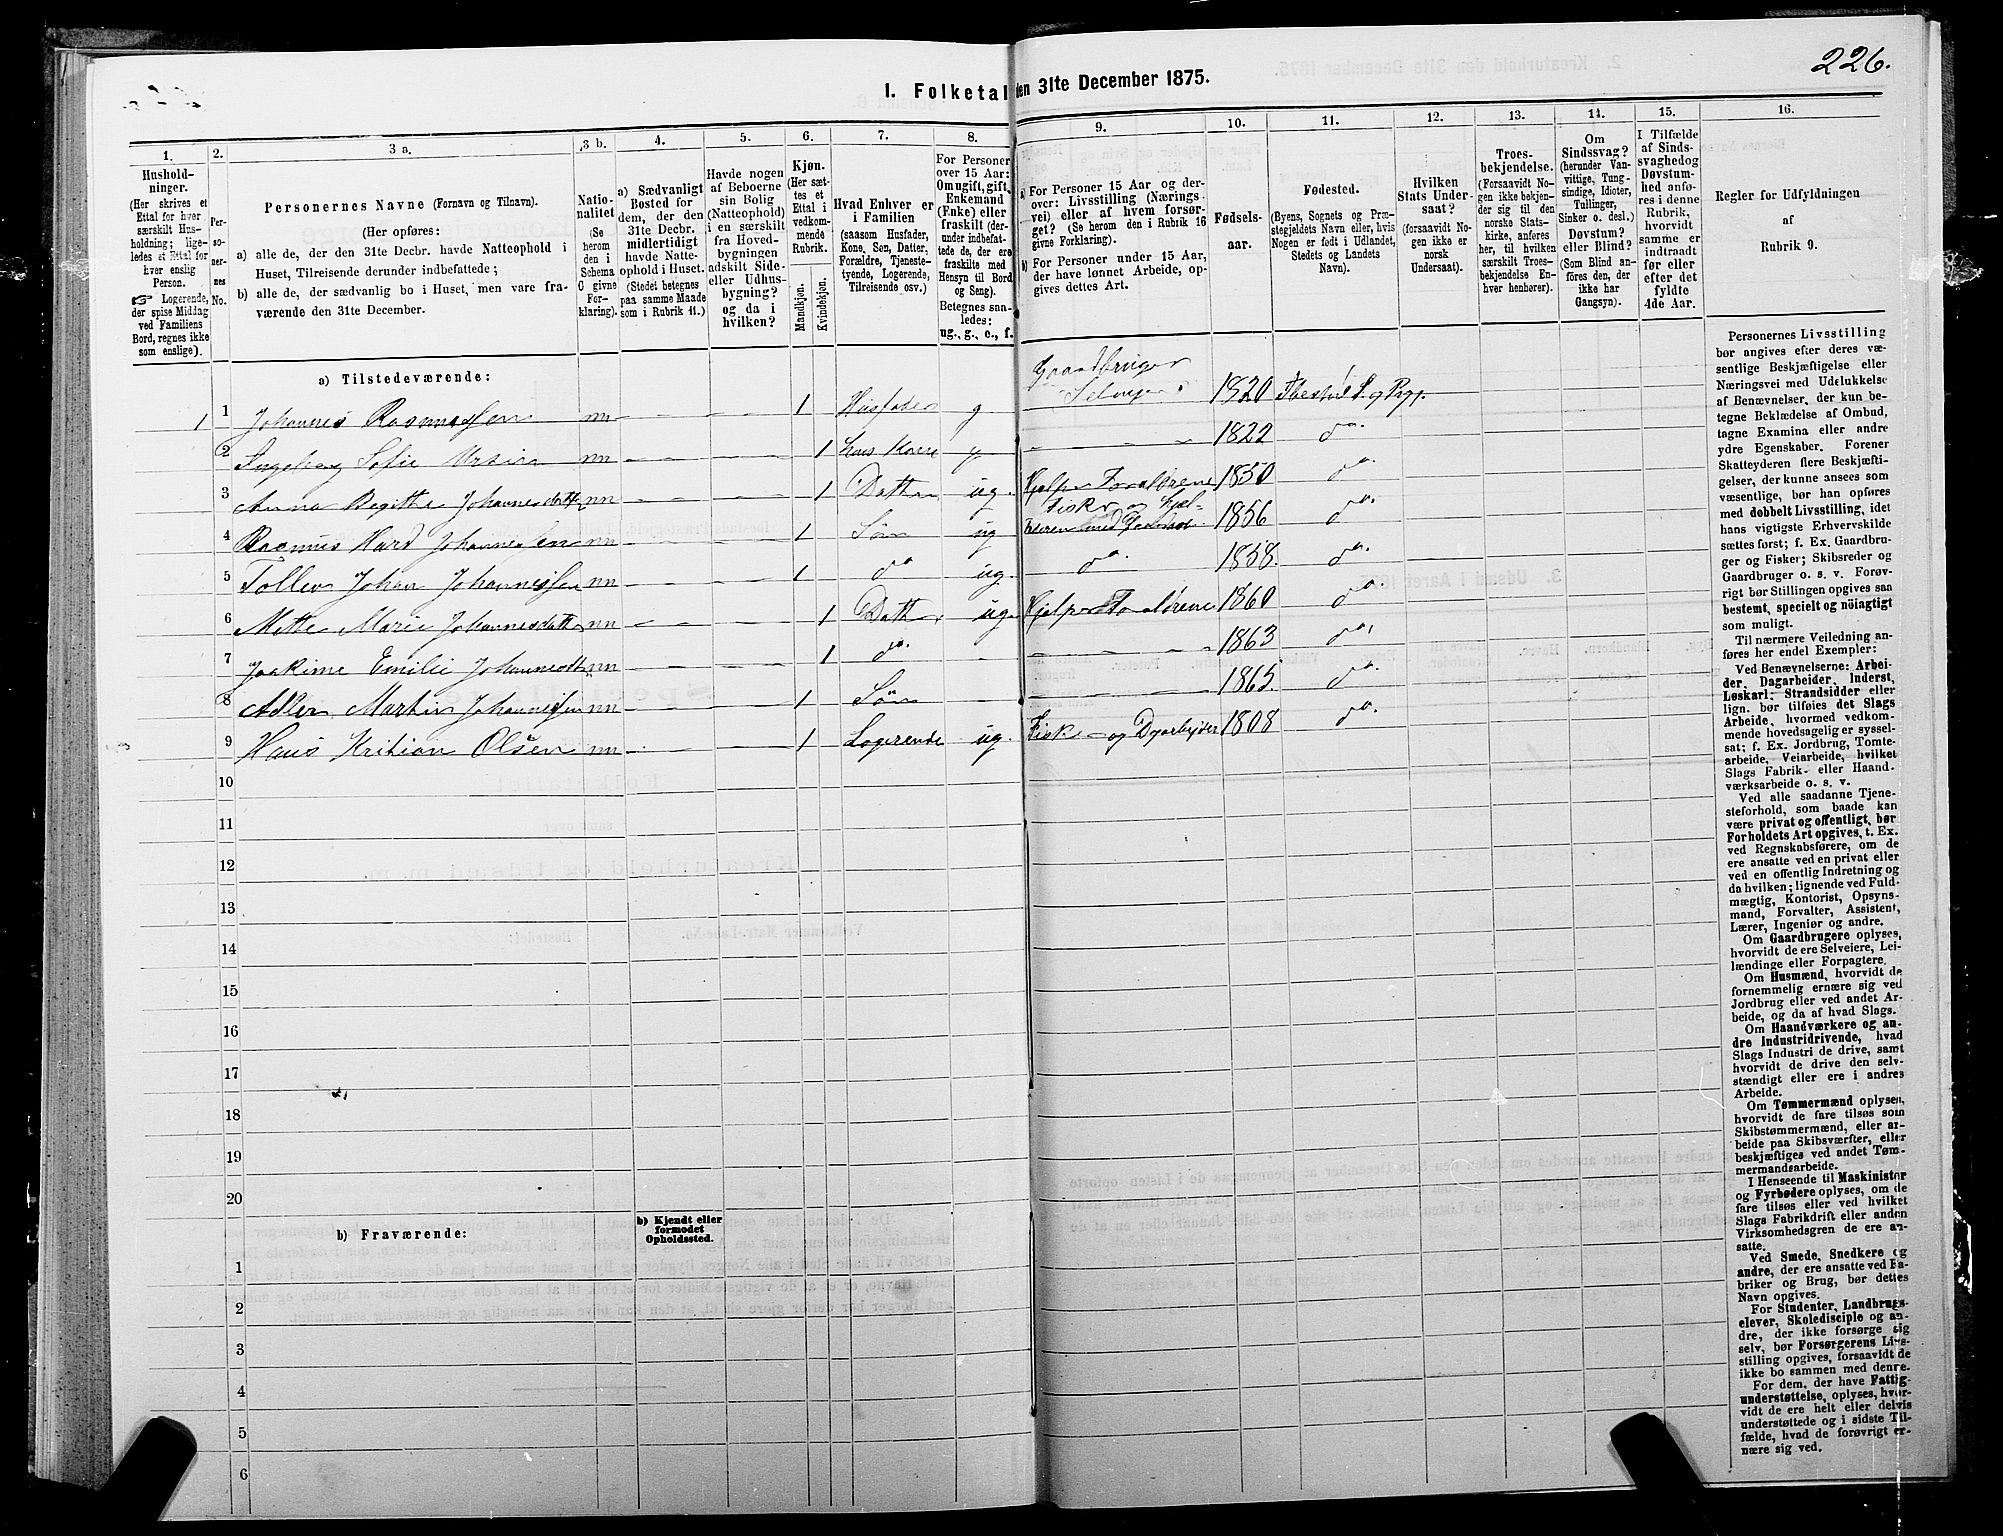 226.
I. Folketal den 31te December 1875.
1.
Hushold-
ninger.
(Her skrives et
Ettal for hver
særskilt Hus-
holdning; lige-
ledes et Ettal for
hver enslig
Person.
☞ Logerende,
der spise Middag
ved Familiens
Bord, regnes ikke
som enslige).
2.
Per-
so-
ner-
nes
No.
3 a.
Personernes Navne (Fornavn og Tilnavn).
(Her opføres:
a) alle de, der den 31te Decbr. havde Natteophold i
Huset, Tilreisende derunder indbefattede;
b) alle de, der sædvanlig bo i Huset, men vare fra-
værende den 31te December.
3 b.
Natio-
nalitet
(Se
herom
den i
Schema
C givne
For-
klaring).
4.
a) Sædvanligt
Bosted for
dem, der den
31te Decbr.
midlertidigt
havde Natte-
ophold i Huset.
(Stedet betegnes
paa samme Maade
som i Rubrik 11.)
5.
Havde nogen
af Beboerne
sin Bolig
(Natteophold)
i en særskilt
fra Hoved-
bygningen
adskilt Side-
eller Udhus-
bygning?
og da i
hvilken?
6.
Kjøn.
(Her sæt-
tes et
Ettal i
vedkom-
mende
Rubrik.
Mandkjøn.
Kvindekjøn.
7.
Hvad Enhver er
i Familien
(saasom Husfader,
Kone, Søn, Datter,
Forældre, Tjeneste-
tyende, Logerende,
Tilreisende osv.)
8.
For Personer
over 15 Aar:
Om ugift, gift,
Enkemand
(Enke) eller
fraskilt (der-
under indbefat-
tede de, der ere
fraskilte med
Hensyn til Bord
og Seng).
Betegnes saa-
ledes:
ug., g., e., f.
9.
a) For Personer 15 Aar og der-
over: Livsstilling (Nærings-
vei) eller af hvem forsør-
get? (Se herom den i Rubrik 16
givne Forklaring).
b) For Personer under 15 Aar,
der have lønnet Arbeide, op-
gives dettes Art.
10.
Fødsels-
aar.
11.
Fødested.
(Byens, Sognets og Præ-
stegjeldets Navn eller, hvis
Nogen er født i Udlandet,
Stedets og Landets
Navn).
12.
Hvilken
Stats Under-
saat?
(forsaavidt No-
gen ikke er
norsk
Undersaat).
13.
Troes-
bekjendelse.
(Forsaavidt No-
gen ikke bekjen-
der sig til den
norske Stats-
kirke, anføres
her, til hvilken
særskilt Troes-
bekjendelse En-
hver henhører).
14.
Om
Sindssvag?
(herunder Van-
vittige, Tung-
sindige, Idioter,
Tullinger,
Sinker o. desl.)
Døvstum?
eller Blind?
(Som Blind an-
føres den, der
ikke har
Gangsyn).
15.
I Tilfælde
af Sinds-
svaghed og
Døvstum-
hed anfø-
res i denne
Rubrik,
hvorvidt
samme er
indtraadt
før eller
efter det
fyldte
4de Aar.
16.
Regler for Udfyldningen
af
Rubrik 9.
a) Tilstedeværende:
1 1 Johannes Rasmussen nn - - 1 Husfader g Gaardbruger Selveier 1820 Ibestad S. og Prgj.
2 Ingeborg Sofie nn - - 1 hans Kone g - - - - 1822 do.
3 Anna Begitthe Johannesdatt. nn - - 1 Datter ug. Hjelper Forældrene 1850 do.
4 Rasmus Johannessen nn - - 1 Søn ug Fisker og 1856 do.
5 Tollev Johan Johannessen nn - - 1 do ug. do. 1858. do.
6 Mette Marie Johannesdatt nn - - 1 Datter ug. Hjelper Forældrene 1860 do.
7 Joakime Emilie Johannesdtt nn - - 1 do. - - - - 1863 do.
8 Adler Martin Johannessen nn - - 1 Søn - - - - 1865. do.
9 Hans Kristian Olsen nn - - 1 Logerende ug. Fisker og 1808 do.
10
11
12
13
14
15
16
17
18
19
20
b) Fraværende:
b) Kjendt eller
formodet
Opholdssted.
1
2
3
4
5
6
Personernes Livsstilling
bør angives efter deres væ-
sentlige Beskjæftigelse eller
Næringsvei med Udelukkelse
af Benævnelser, der kun be-
tegne Beklædelse af Ombud,
tagne Examina eller andre
ydre Egenskaber. Forener
Skatteyderen flere Beskjæfti-
gelser, der kunne ansees som
væsentlige, bør han opføres
med dobbelt Livsstilling, idet
hans vigtigste Erhvervskilde
sættes først; f. Ex. Gaardbru-
ger og Fisker; Skibsreder og
Gaardbruger o. s. v. Forøv-
rigt bør Stillingen opgives saa
bestemt, specielt og nöiagtigt
som muligt.
Til nærmere Veiledning an-
føres her endel Exempler:
Ved Benævnelserne: Arbei-
der, Dagarbeider, Inderst,
Løskarl, Strandsidder eller
lign. bør tilføies det Slags
Arbeide, hvormed vedkom-
mende hovedsagelig er syssel-
sat; f. Ex. Jordbrug, Tomte-
arbeide, Veiarbeide, hvilket
Slags Fabrik- eller Haand-
værksarbeide o. s. v.
Ved alle saadanne Tjene-
steforhold, som baade kan
være privat og offentligt, bør
Forholdets Art opgives, t. Ex.
ved Regnskabsførere, om de
ere ansatte ved en privat eller
ved en offentlig Indretning og
da hvilken; lignende ved Fuld-
mægtig, Kontorist, Opsyns-
mand, Forvalter, Assistent,
Lærer, Ingeniør og andre.
Om Gaardbrugere oplyses,
hvorvidt de ere Selveiere, Lei-
lændinge eller Forpagtere.
Om Husmænd, hvorvidt de
fornemmelig ernære sig ved
Jordbrug eller ved andet Ar-
beide, og da af hvad Slags.
Om Haandværkere og an-
dre Industridrivende, hvad
Slags Industri de drive, samt
hvorvidt de drive den selv-
stændigt eller ere i andres
Arbeide.
Om Tømmermænd oplyses,
hvorvidt de fare tilsøs som
Skibstømmermænd, eller ar-
beide paa Skibsværfter, eller
beskjæftiges ved andet Tøm-
mermandsarbeide.
I Henseende til Maskinister
og Fyrbødere oplyses, om de
fare tilsøs eller ved hvilket
Slags Fabrikdrift eller anden
Virksomhedsgren de ere an-
satte.
Ved Smede, Snedkere og
andre, der ere ansatte ved Fa-
briker og Brug, bør dettes
Navn opgives.
For Studenter, Landbrugs-
elever, Skoledisciple og an-
dre, der ikke forsørge sig
selv, bør Forsørgerens Livs-
stilling opgives, forsaavidt de
ikke bo sammen med denne.
For dem, der have Fattig-
understøttelse, oplyses, hvor-
vidt de ere helt eller delvis
understøttede og i sidste Til-
fælde, hvad de forøvrigt er-
nære sig ved.